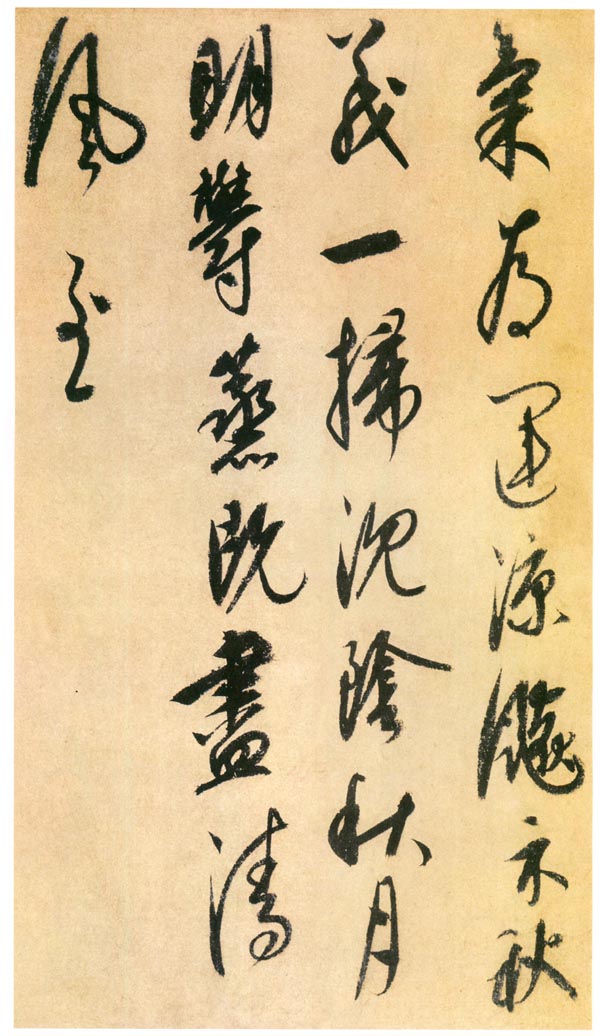 氣為運涼飈示秋
義一掃沉陰秋月
明鬱蒸既盡清
風至